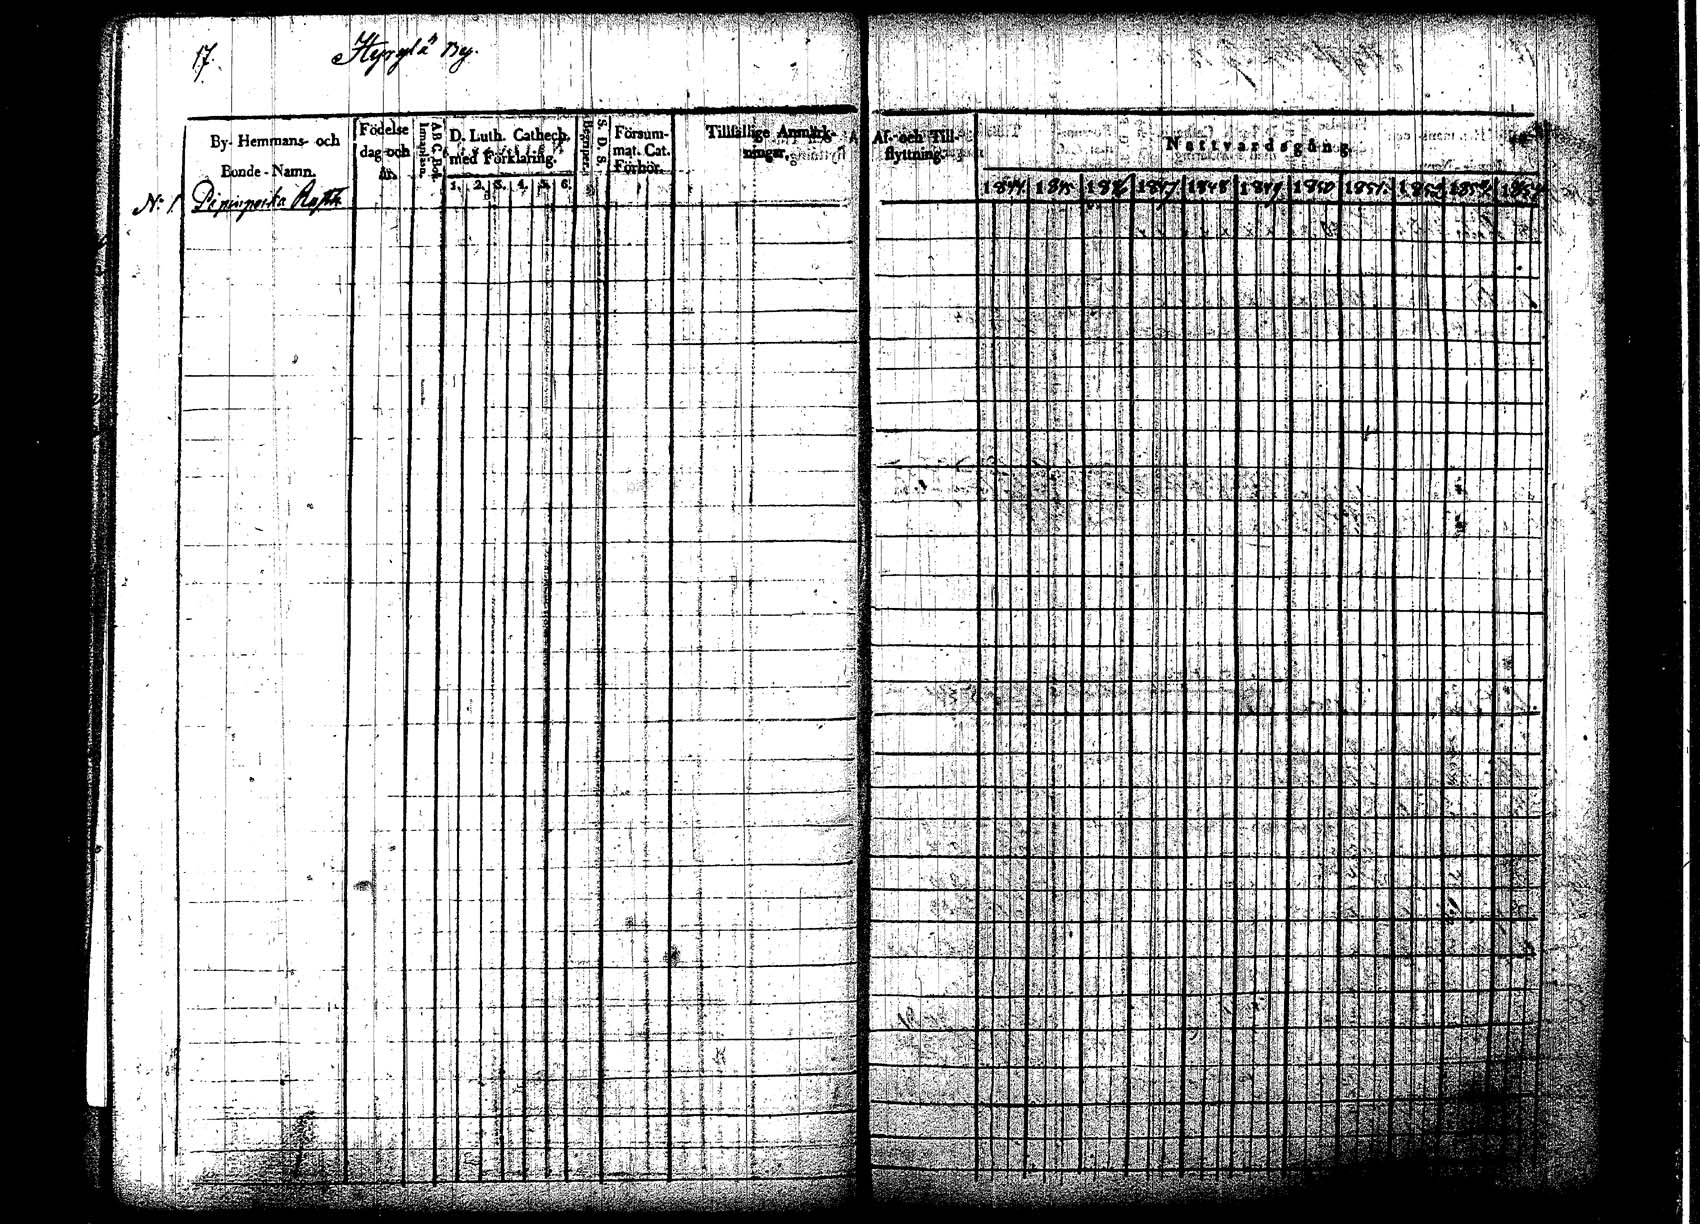 17. Hyrylä By.
By- Hemmans- och Bonde-Namn.
Födelse dag och år.
A B C Bok.
Innanläsn.
D. Luth. Cathech. med Förklaring.
1. 2. 3. 4. 5. 6.
Begreppet.
S. D. S.
Försummat. Cat. Förhör.
Tillfällige Anmärkningar.
Af- och Tillflyttning.
Nattvardsgång.
1844 1845 1846 1847 1848 1849 1850 1851. 1852 1853 1854
N:o 1.